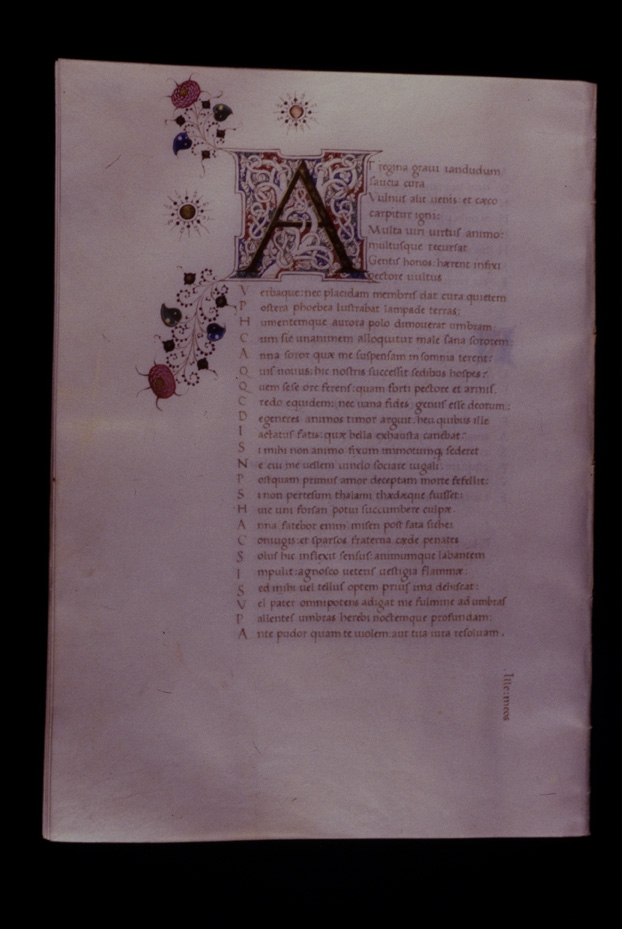 AT regina graui iandudum
saucia cura
Vulnus alit uenis: et cæco
carpitur igni:
Multa uiri uirtus animo:
multusque recursat
Gentis honos: hærent infixi
pectore uultus
Verbaque: nec placidam membris dat cura quietem
Postera phoebea lustrabat lampade terras:
Humentemque aurora polo dimouerat umbram:
Cum sic unanimem alloquitur male sana sororem:
Anna soror quæ me suspensam insomnia terent?
Quis nouus hic nostris successit sedibus hospes?
Quem sese ore ferens: quam forti pectore et armis.
Credo equidem: nec uana fides: genus esse deorum:
Degeneres animos timor arguit. heu quibus ille
Iactatus fatis: quæ bella exhausta canebat?
Si mihi non animo fixum immotumq; sederet
Ne cui me uellem uinclo sociare iugali:
Postquam primus amor deceptam morte fefellit:
Si non pertesum thalami thædæque fuisset:
Huic uni forsan potui succumbere culpæ
Anna fatebor enim: miseri post fata sichei
Coniugis: et sparsos fraterna cæde penates
Solus hic inflexit sensus: animumque labantem
Impulit: agnosco ueteris uestigia flammæ:
Sed mihi uel tellus optem prius ima dehiscat:
Vel pater omnipotens adigat me fulmine ad umbras
Pallentes umbras herebi noctemque profundam:
Ante pudor quam te uiolem: aut tua iura resoluam.
Ille: meos